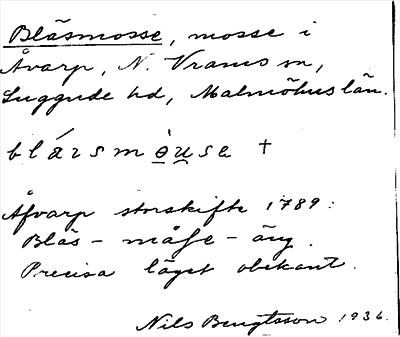 Blåsmosse, mosse i
Åvarp, N. Vrams sn,
Luggude hd, Malmöhus län.
blǻrsmòusa †
Åfvarp storskifte 1789:
Blås – måſse – äng.
Precisa läget obekant.
Nils Bengtsson 1936.